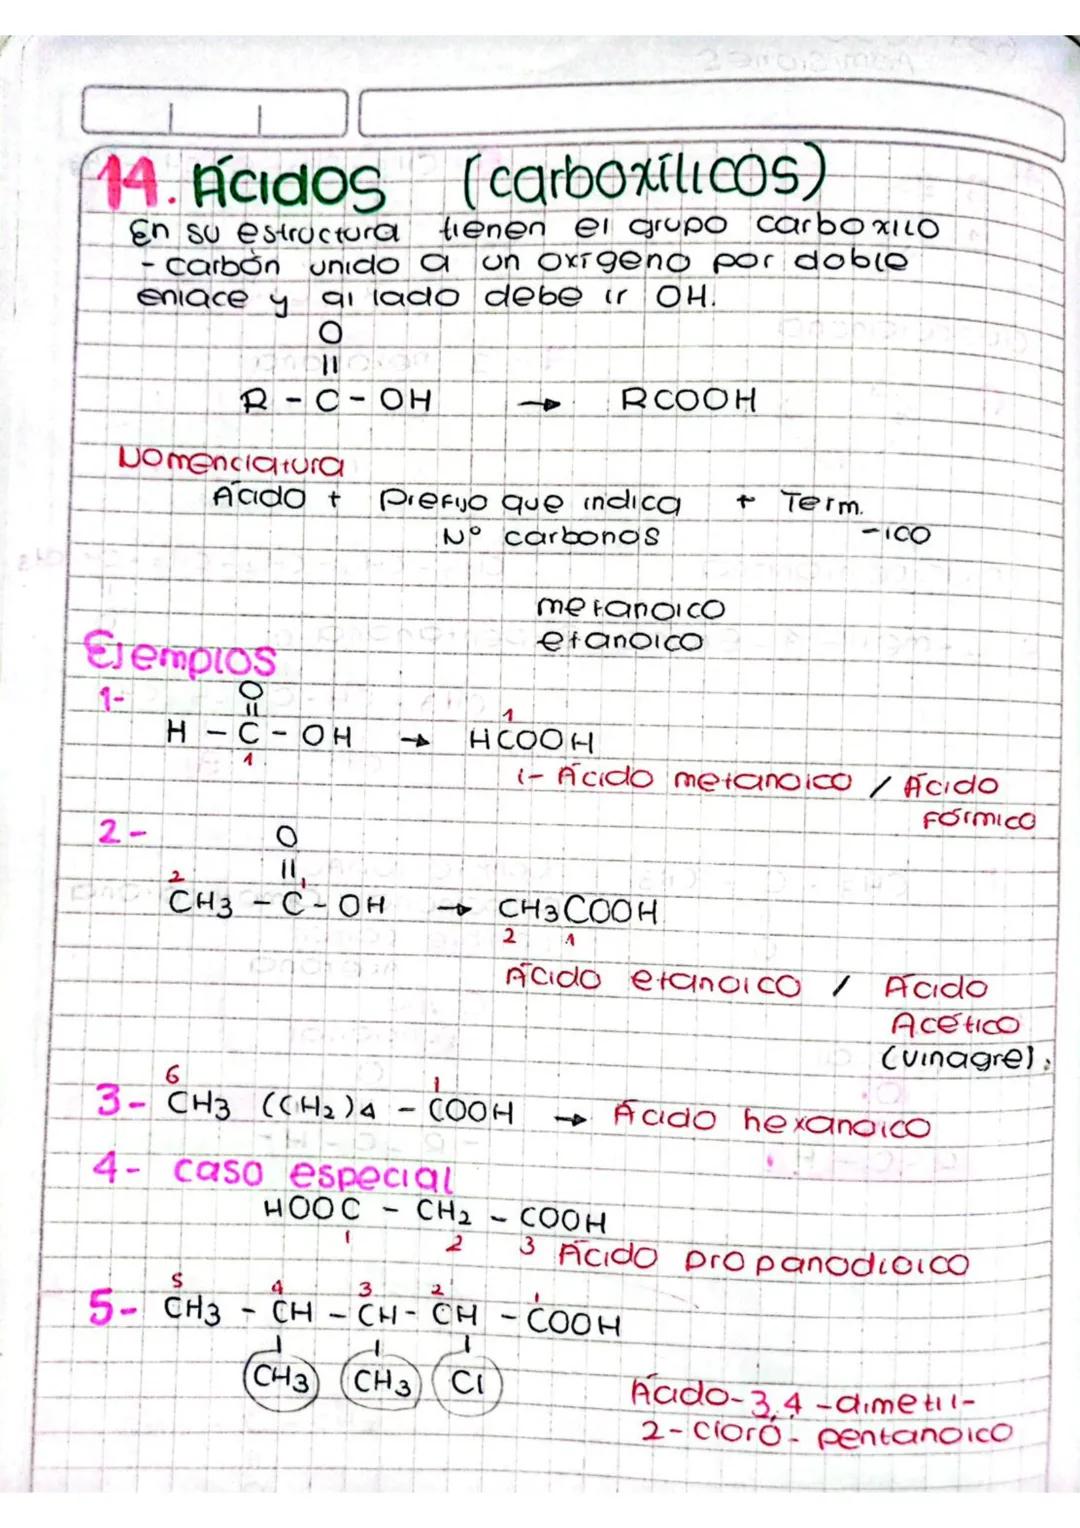 14. Ácidos (carboxílicos)
En su estructura tienen el grupo carboxilo
- carbón unido a un oxígeno por doble
enlace y al lado debe ir OH.
O
||
R - C - OH → RCOOH
Nomenclatura
Ácido + prefijo que indica + Term.
Nº carbonos -ico
metanoico
etanoico
Ejemplos
1- O
|| 1
H - C - OH → HCOOH
1
1- Ácido metanoico / Ácido
fórmico
2- O
2 || 1
CH3 - C - OH → CH3COOH
2 1
Ácido etanoico / Ácido
Acético
(vinagre).
6 1
3- CH3 (CH2)4 - COOH → Ácido hexanoico
4- caso especial
HOOC - CH2 - COOH
1 2 3 Ácido propanodioico
5 4 3 2 1
5- CH3 - CH - CH - CH - COOH
CH3 CH3 Cl
Ácido-3,4-dimetil-
2-cloro-pentanoico